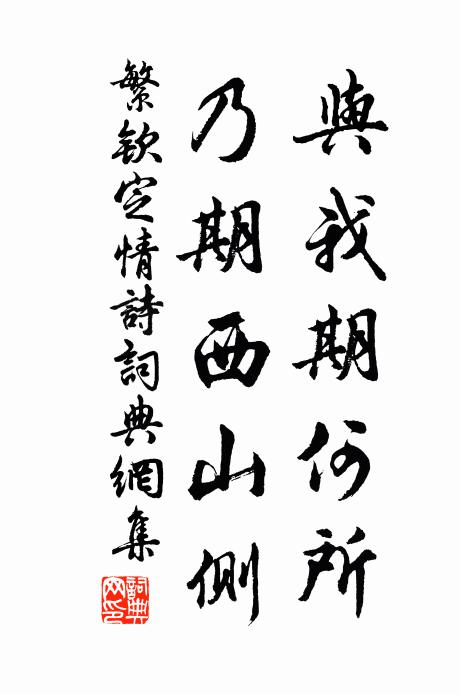 與我期何所
乃期西山側
繁欽定情詩詞典網集
詞典